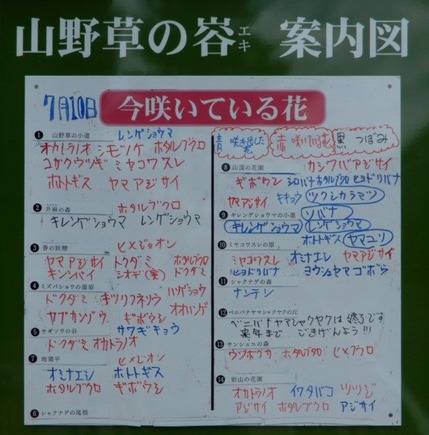 山野草の峪 エキ 案内図
7月10日
今咲いている花
青 咲き出した花
赤 咲いている花
黒 つぼみ
1 山野草の小道
レンゲショウマ
オカトラノオ シモツケ ホタルブクロ
コガクウツギ ミヤコワスレ
ホトトギス ヤマアジサイ
2
ホタルブクロ
キレンゲショウマ レンゲショウマ
3 春の妖精
ヒメジョオン
ヤマアジサイ トクダミ ホタルブクロ
キンシバイ シオデ(実) ドクダミ
4 ミズバショウの湿原
ハンゲショウ
ドクダミ キツリフネソウ
ヤブカンゾウ ギボウシ オカンゾウ
5 サギソウの谷
サワギキョウ
ドクダミ オカトラノオ
7 地蔵平
ヒメジョオン
オミナエシ ホトトギス
ホタルブクロ ギボウシ
6 シャクナゲの尾根
8 山頂の花園
カシワバアジサイ
ギボウシ シロバナホタルブクロ ヒヨドリバナ
ヤマアジサイ キキョウ ツクシカラマツ
9 キレンゲショウマの小道
ソバナ
キレンゲショウマ レンゲショウマ
10 ミヤコワスレの原
ホトトギス ヤマユリ
ミヤコワスレ オミナエシ ヤマアジサイ
ヒヨドリバナ ヨウシュヤマゴボウ
11 シャクナゲの森
ナンテン
12 ベニバナヤマシャクヤクの丘
ベニバナヤマシャクヤクは終了です
来年まで ごきげんよう!!!
13 サンシュユの森
ウツボグサ ホタルブクロ ヒメフウロ
14
オカトラノオ イワタバコ ツツジ
アジサイ ホタルブクロ アジサイ